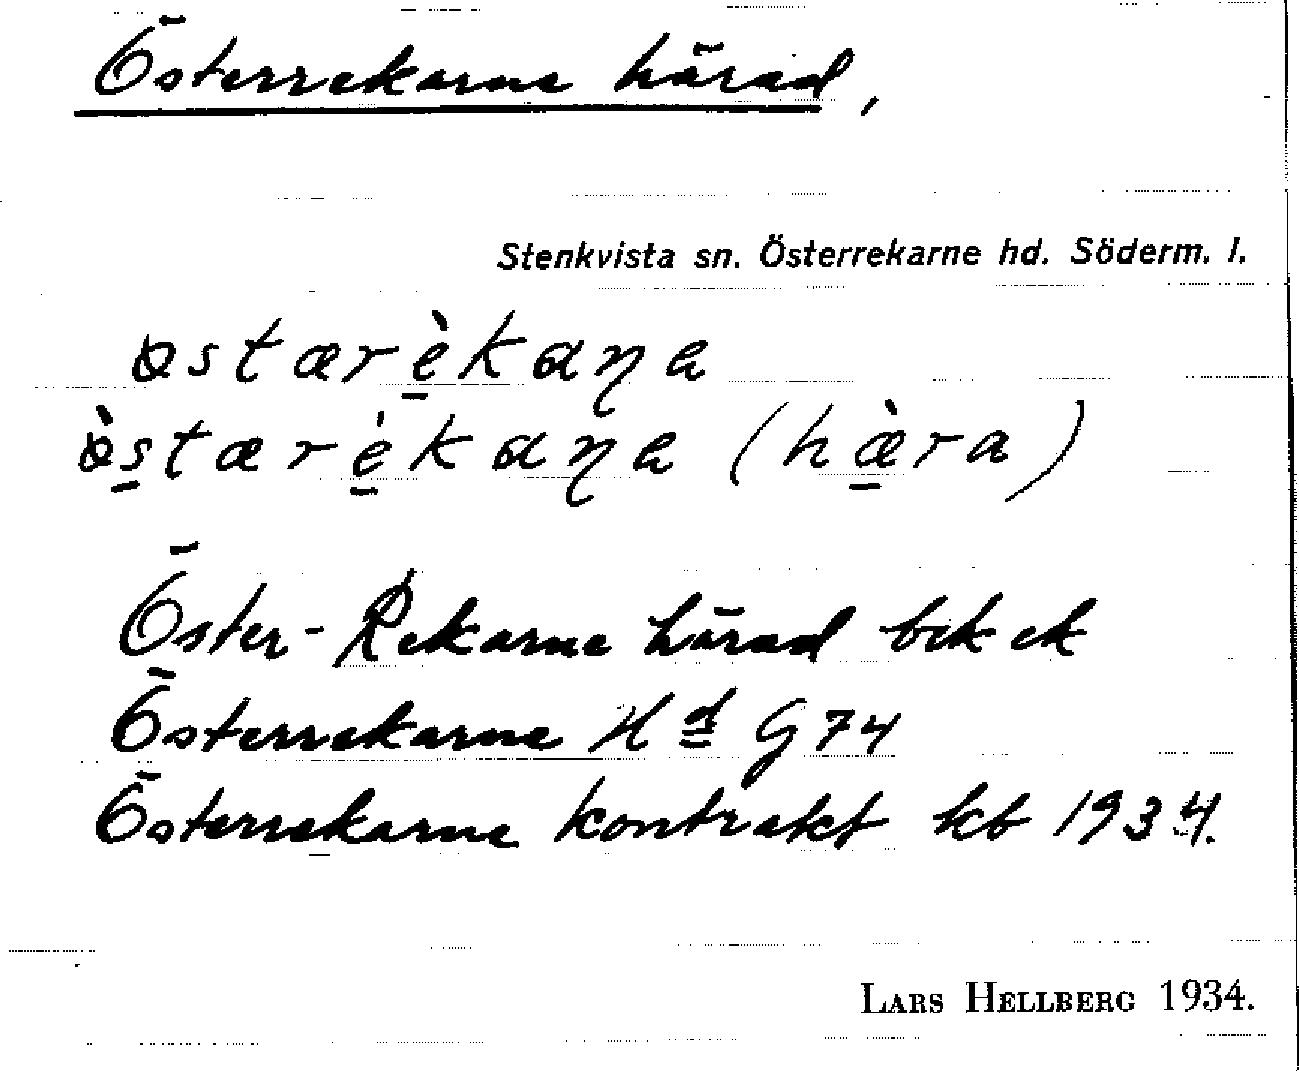 Österrekarne härad,
Stenkvista sn. Österrekarne hd. Söderm. l.
östærèkaɳe
ö̀stærèkaɳe (hæ̀ra)
Öster-Rekarne härad bek ek
Österrekarne Hd G74
Österrekarne kontrakt kb 1934.
LARS HELLBERG 1934.